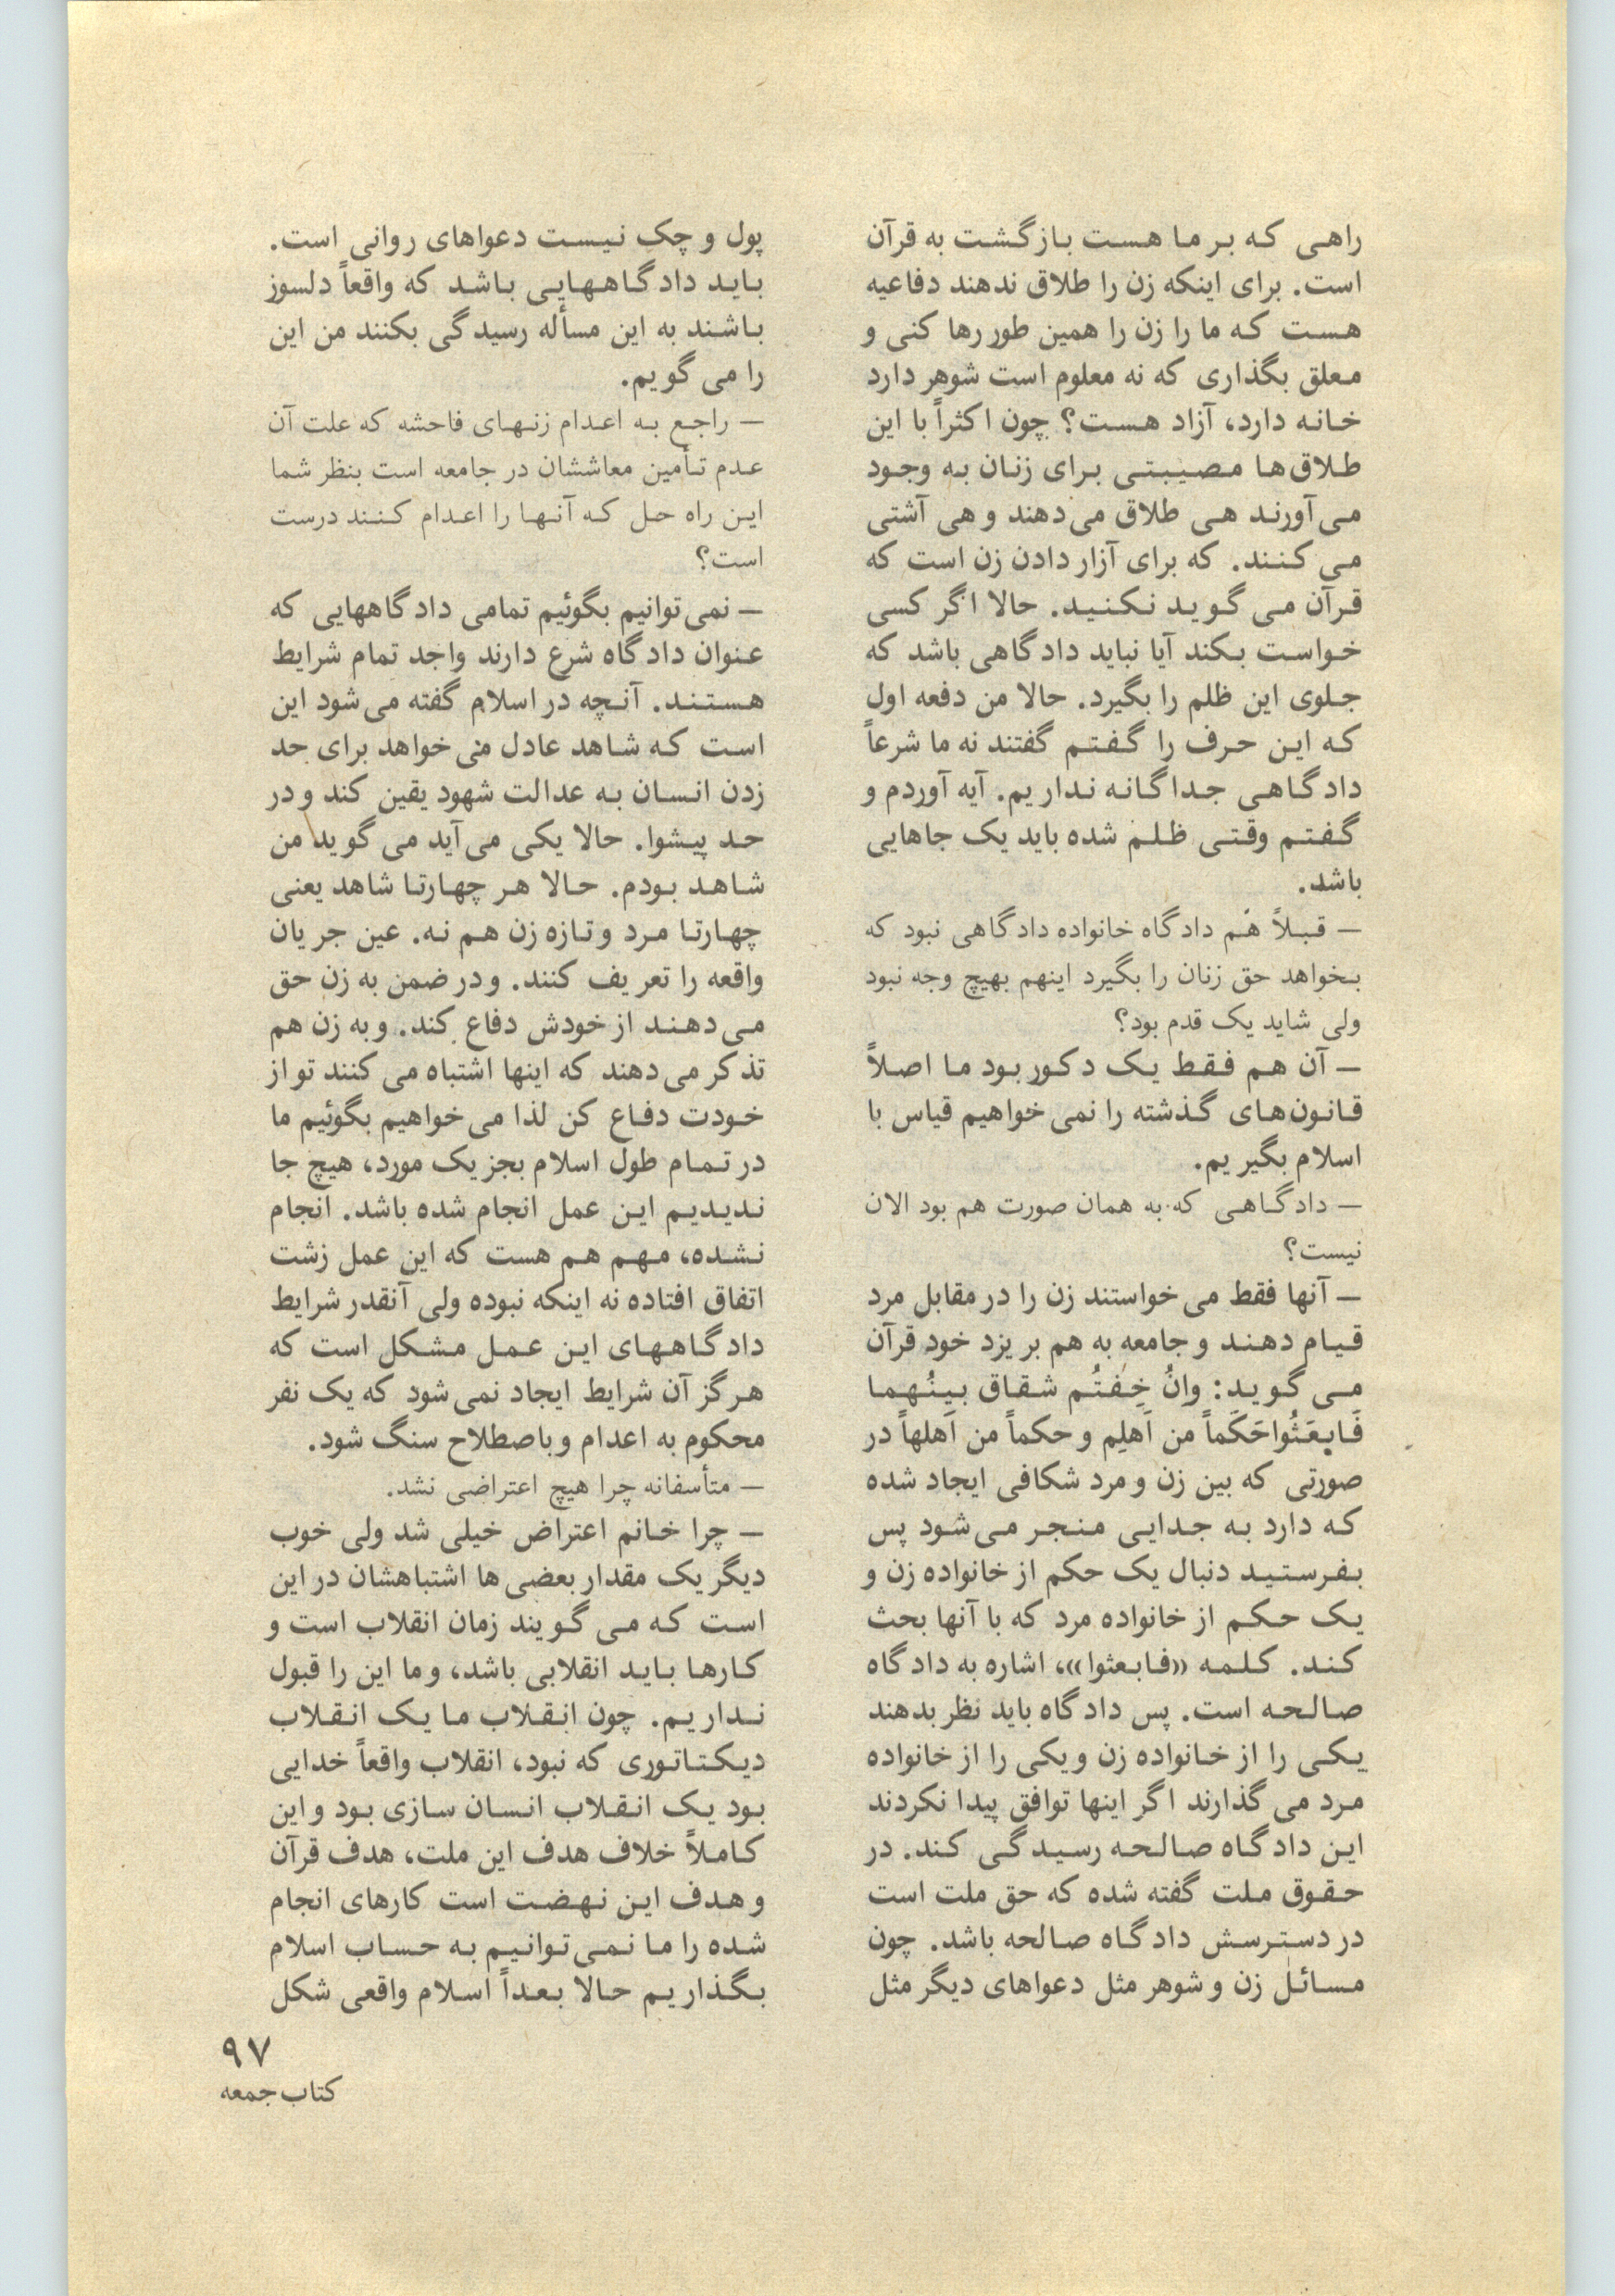 راهی که بر ما هست بازگشت به قرآن
است. برای اینکه زن را طلاق ندهند دفاعیه
هست که ما را زن را همین طور رها کنی و
معلق بگذاری که نه معلوم است شوهر دارد
خانه دارد، آزاد هست؟ چون اکثراً با این
طلاق‌ها مصیبتی برای زنان به وجود
می‌آورند هی طلاق می‌دهند و هی آشتی
می‌کنند. که برای آزار دادن زن است که
قرآن می‌گوید نکنید. حالا اگر کسی
خواست بکند آیا نباید دادگاهی باشد که
جلوی این ظلم را بگیرد. حالا من دفعه اول
که این حرف را گفتم گفتند نه ما شرعاً
دادگاهی جداگانه نداریم. آیه آوردم و
گفتم وقتی ظلم شده باید یک جاهایی
باشد.
— قبلاً هم دادگاه خانواده دادگاهی نبود که
بخواهد حق زنان را بگیرد اینهم بهیچ وجه نبود
ولی شاید یک قدم بود؟
— آن هم فقط یک دکور بود ما اصلاً
قانون‌های گذشته را نمی‌خواهیم قیاس با
اسلام بگیریم.
— دادگاهی که به همان صورت هم بود الان
نیست؟
— آنها فقط می‌خواستند زن را در مقابل مرد
قیام دهند و جامعه به هم بریزد خود قرآن
می‌گوید: وإنُ خِفتُم شقاق بینُهما
فَابعَثُواحَکَماً من اَهلِم و حکماً من اَهلهاً در
صورتی که بین زن و مرد شکافی ایجاد شده
که دارد به جدایی منجر می‌شود پس
بفرستید دنبال یک حکم از خانواده زن و
یک حکم از خانواده مرد که با آنها بحث
کند. کلمه «فابعثوا»، اشاره به دادگاه
صالحه است. پس دادگاه باید نظر بدهند
یکی را از خانواده زن و یکی را از خانواده
مرد می‌گذارند اگر اینها توافق پیدا نکردند
این دادگاه صالحه رسیدگی کند. در
حقوق ملت گفته شده که حق ملت است
در دسترسش دادگاه صالحه باشد. چون
مسائل زن و شوهر مثل دعواهای دیگر مثل
پول و چک نیست دعواهای روانی است.
باید دادگاههایی باشد که واقعاً دلسوز
باشند به این مسأله رسیدگی بکنند من این
را می‌گویم.
— راجع به اعدام زنهای فاحشه که علت آن
عدم تأمین معاششان در جامعه است بنظر شما
این راه حل که آنها را اعدام کنند درست
است؟
— نمی‌توانیم بگوئیم تمامی دادگاههایی که
عنوان دادگاه شرع دارند واجد تمام شرایط
هستند. آنچه در اسلام گفته می‌شود این
است که شاهد عادل می‌خواهد برای حد
زدن انسان به عدالت شهود یقین کند و در
حد پیشوا. حالا یکی می‌آید می‌گوید من
شاهد بودم. حالا هر چهارتا شاهد یعنی
چهارتا مرد و تازه زن هم نه. عین جریان
واقعه را تعریف کنند. و در ضمن به زن حق
می‌دهند از خودش دفاع کند. و به زن هم
تذکر می‌دهند که اینها اشتباه می‌کنند تو از
خودت دفاع کن لذا می‌خواهیم بگوئیم ما
در تمام طول اسلام بجز یک مورد، هیچ جا
ندیدیم این عمل انجام شده باشد. انجام
نشده، مهم هم هست که این عمل زشت
اتفاق افتاده نه اینکه نبوده ولی آنقدر شرایط
دادگاههای این عمل مشکل است که
هرگز آن شرایط ایجاد نمی‌شود که یک نفر
محکوم به اعدام و باصطلاح سنگ شود.
— متأسفانه چرا هیچ اعتراضی نشد.
— چرا خانم اعتراض خیلی شد ولی خوب
دیگر یک مقدار بعضی‌ها اشتباهشان در این
است که می‌گویند زمان انقلاب است و
کارها باید انقلابی باشد، و ما این را قبول
نداریم. چون انقلاب ما یک انقلاب
دیکتاتوری که نبود، انقلاب واقعاً خدایی
بود یک انقلاب انسان سازی بود و این
کاملاً خلاف هدف این ملت، هدف قرآن
و هدف این نهضت است کارهای انجام
شده را ما نمی‌توانیم به حساب اسلام
بگذاریم حالا بعداً اسلام واقعی شکل
۹۷
کتاب جمعه